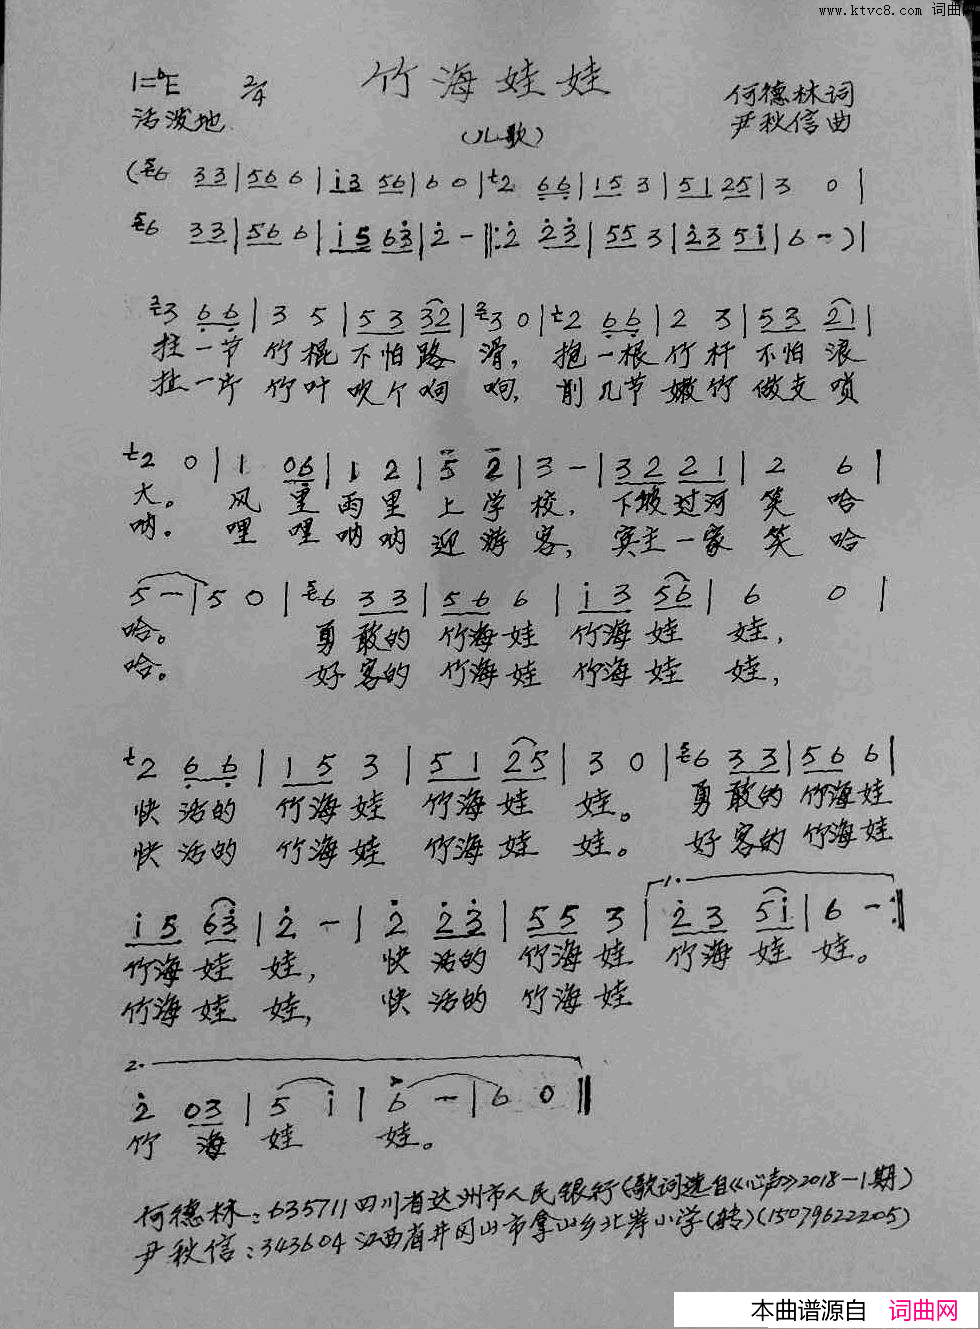 www.ktvc8.com 词曲网
竹海娃娃
1=♭E 2/4 何德林词
活泼地 (儿歌) 尹秋信曲
(6 33|566|i3 56|60|2 66|15 3|51 25|3 0|
6 33|566|i5 63|2-‖:2 23|55 3|23 5i|6-)|
3 66|3 5|53 32|3 0|2 66|2 3|53 21|
拄一节竹棍不怕路滑,抱一根竹杆不怕浪
扯一片竹叶吹个响响,削几节嫩竹做支唢
2 0|1 06|1 2|5 2|3-|32 21|2 6|
大。风里雨里上学校,下坡过河笑哈
呐。哩哩呐呐迎游客,宾主一家笑哈
5-|5 0|6 33|56 6|i3 56|6 0|
哈。勇敢的竹海娃竹海娃娃,
哈。好客的竹海娃竹海娃娃,
2 66|15 3|51 25|3 0|6 33|56 6|
快活的竹海娃竹海娃娃。勇敢的竹海娃
快活的竹海娃竹海娃娃。好客的竹海娃
1.
i5 63|2-|2 23|55 3|23 5i|6-:‖
竹海娃娃,快活的竹海娃竹海娃娃。
竹海娃娃,快活的竹海娃
2.
2 03|5 i|6-|6 0‖
竹海娃娃。
何德林:635711四川省达州市人民银行(歌词选自《心声》2018-1期)
尹秋信:343604江西省井冈山市拿山乡北岸小学(转)(15079622205)
本曲谱源自 词曲网